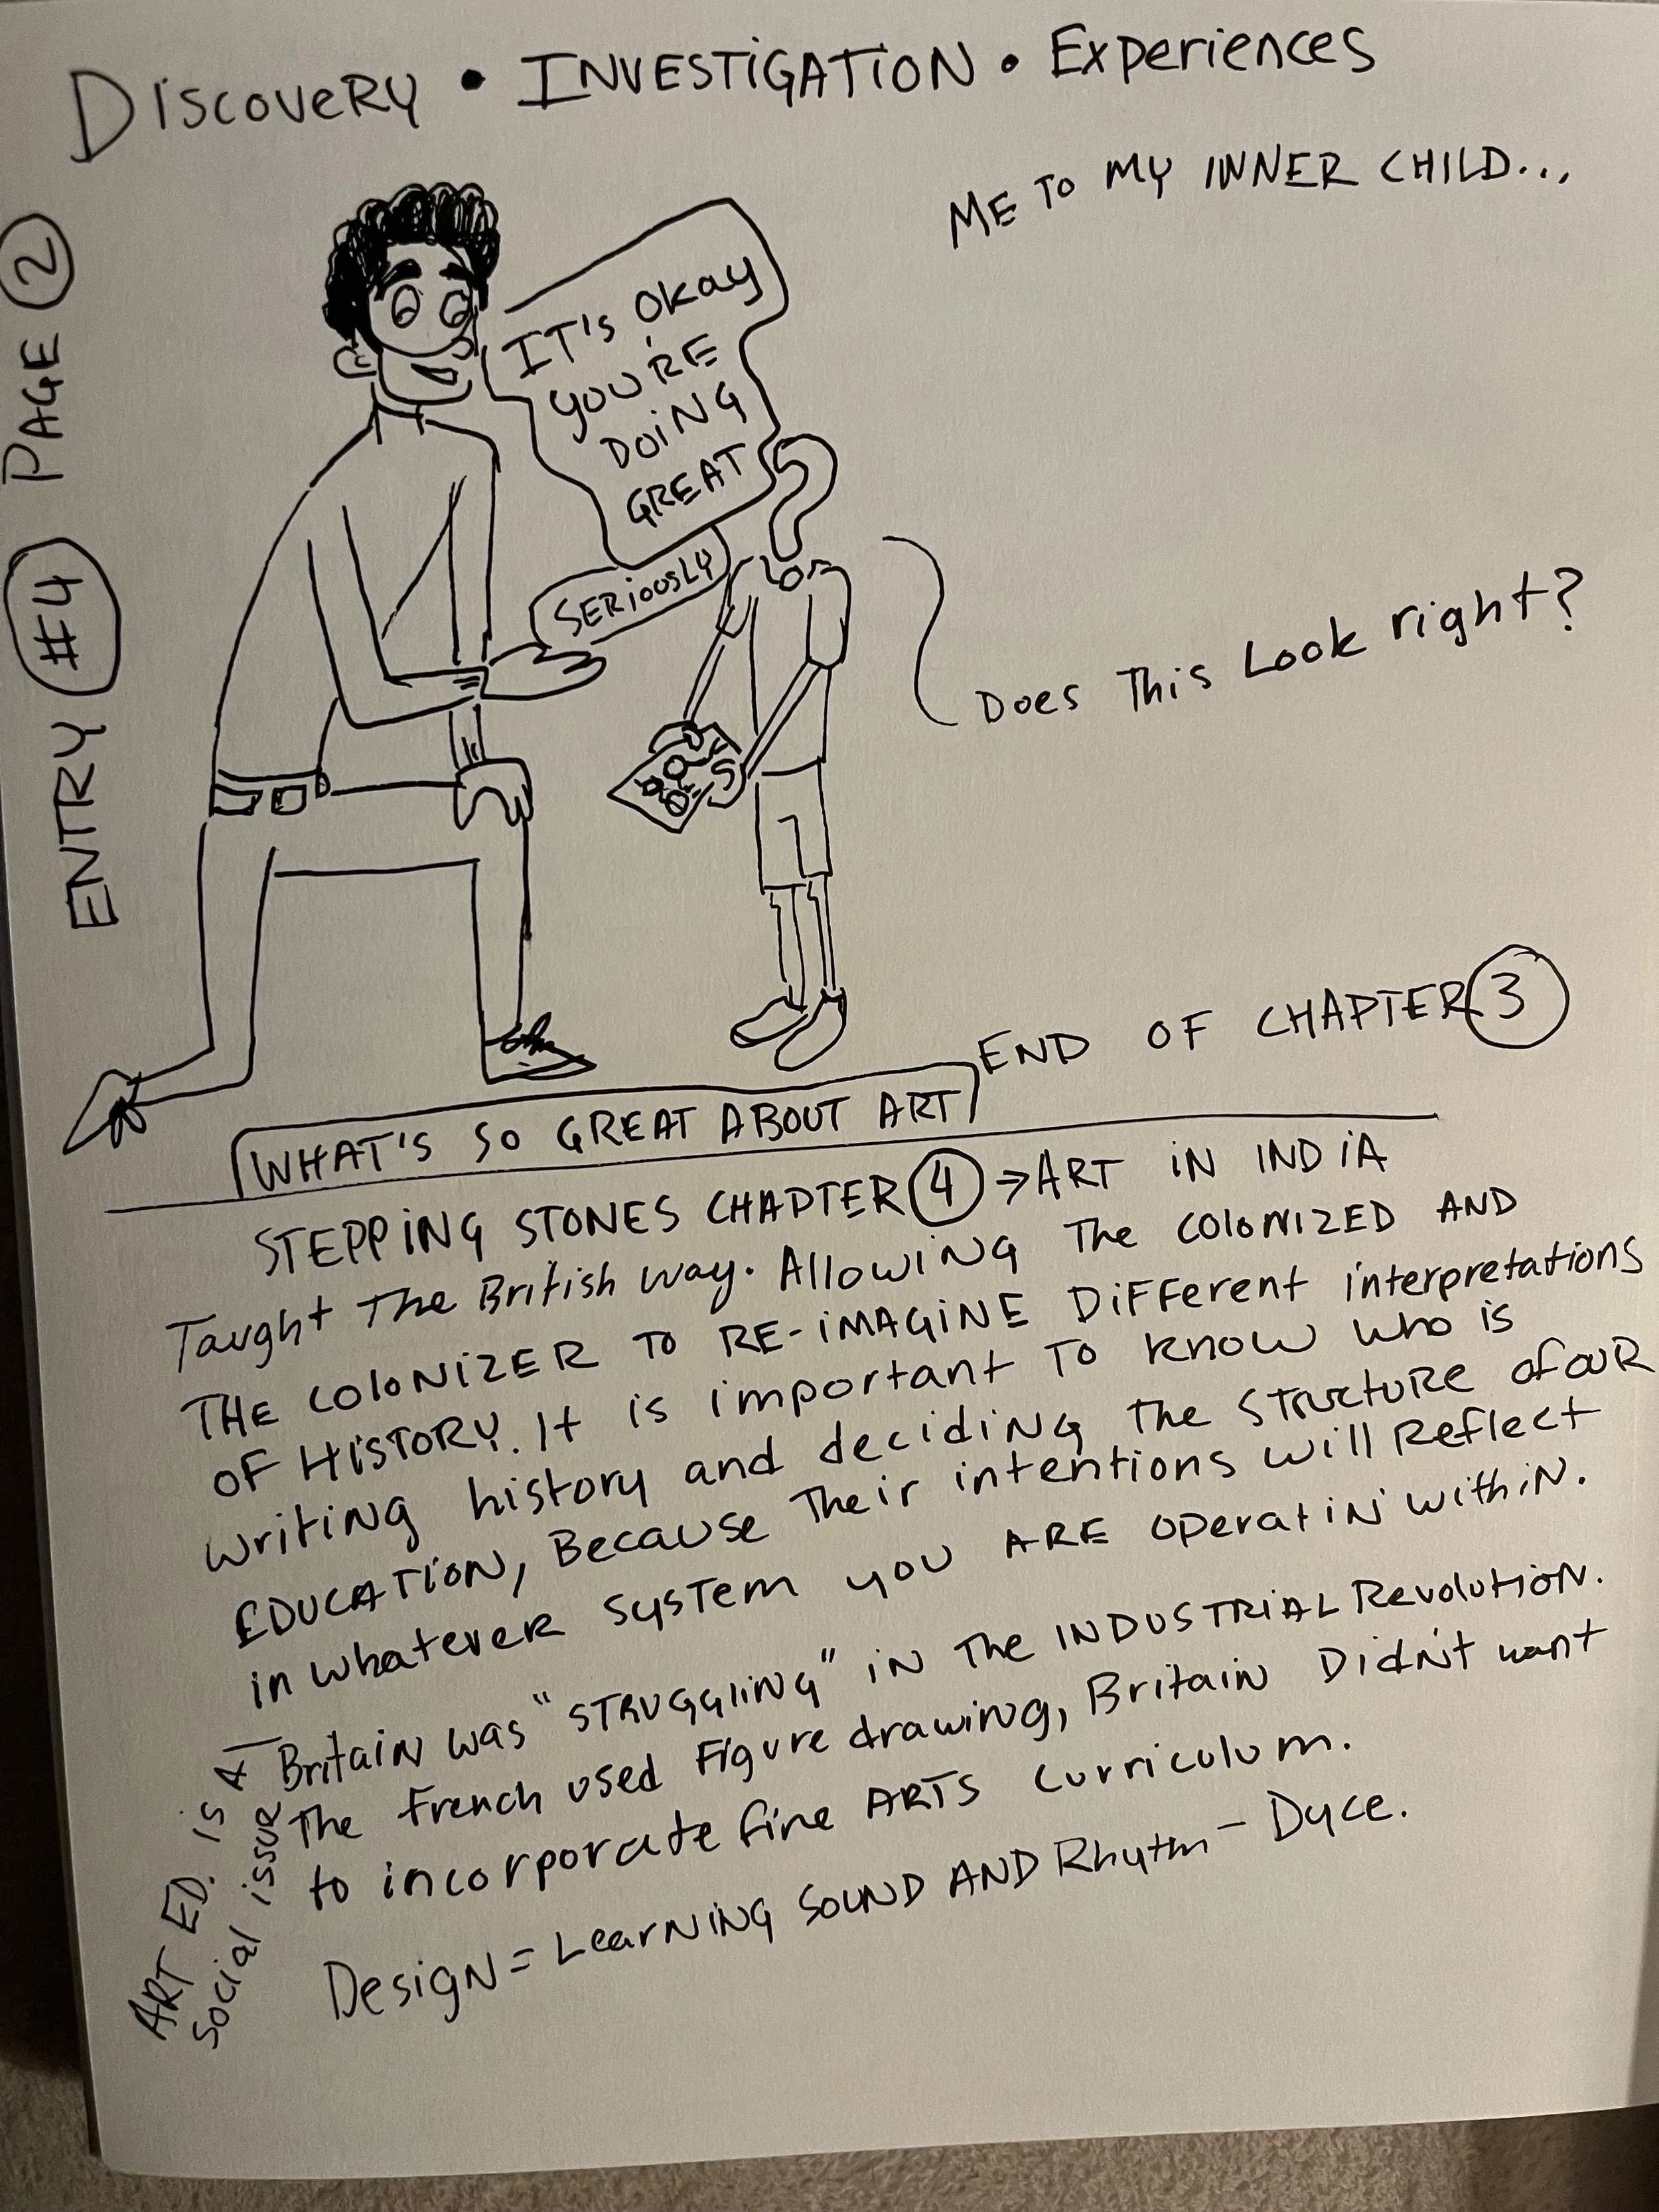 Discovery • INVESTIGATION • Experiences
ME TO MY INNER CHILD...
ENTRY #4 PAGE 2
IT'S OKAY
YOU'RE
DOING
GREAT
SERIOUSLY
Does This Look right?
END OF CHAPTER 3
WHAT'S SO GREAT ABOUT ART
STEPPING STONES CHAPTER 4 → ART IN INDIA
Taught The British way. Allowing The colonized AND
THE COLONIZER TO RE-IMAGINE DiFFerent interpretations
OF HISTORY. It is important To know who is
writing history and deciding The structure of our
EDUCATION, Because Their intentions will Reflect
in whatever system you ARE operatin' within.
Britain was "STRUGGLING" in The INDUSTRIAL Revolution.
The French used Figure drawing, Britain Didn't want
to incorporate fine ARTS curriculum.
Design = Learning SOUND AND Rhythm - Dyce.
ART ED. is A
Social issue